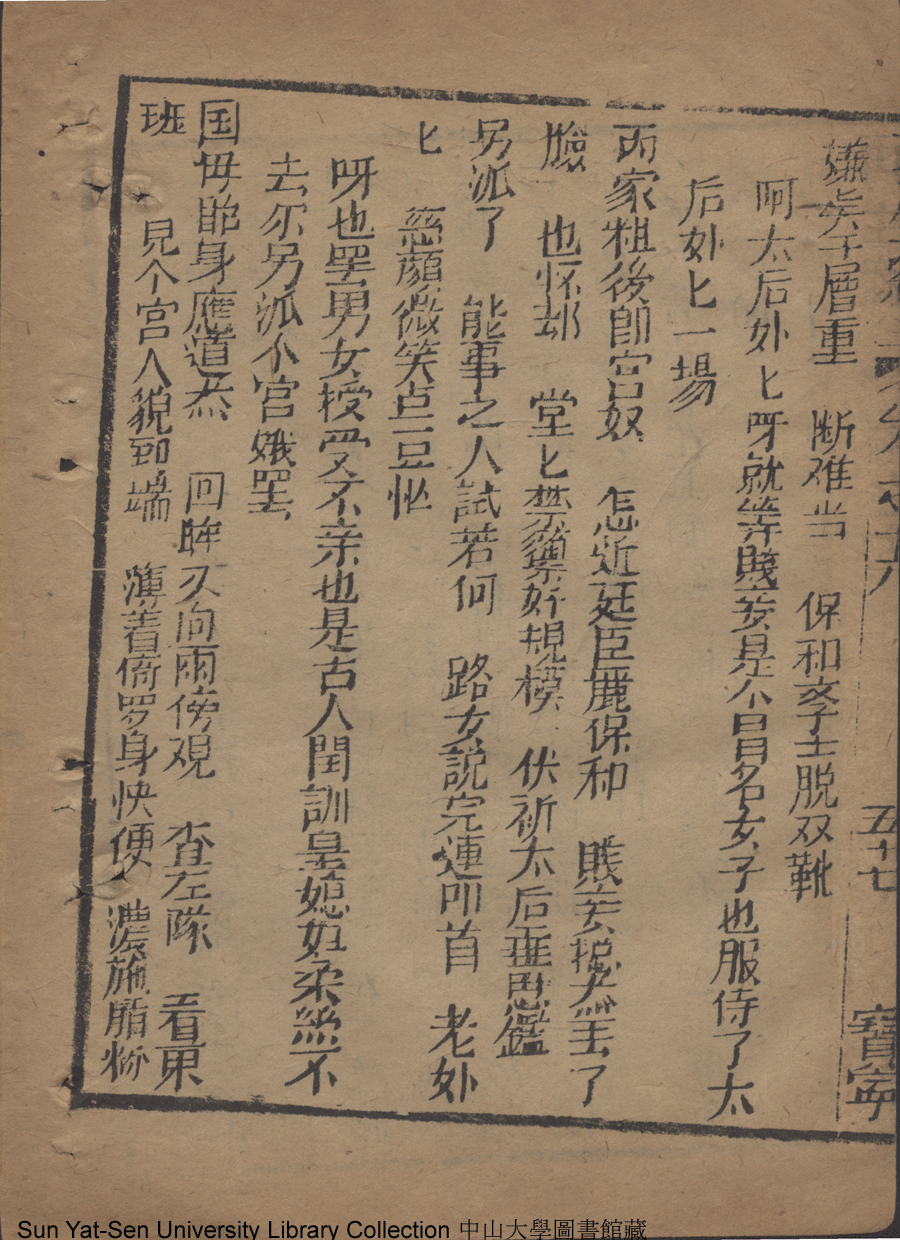 嫌矣千層重　断难当　保和亥子士脱双靴
阿太后外匕呀就等賤妾是个冒名女子也服侍了太
后外匕一場
丙家粗後即宮奴　怎近廷臣鹿保和　賤妾㧾然羞了
臉　也怀却　堂匕禁籞好規模　伏祈太后垂恩鑑
另派了　能事之人試若何　路女説完連叩首　老外
匕　慈顔微笑点豆忙
呀也罢男女授受不亲也是古人閏訓皇媳如柔絲不
去尔另派个宮娥罢
国母那身應道杰　回眸又向両傍观　查左隊　看東
班　見个宮人貌到端　薄着倚罗身快便　濃施脂粉
五十七
寶寧
Sun Yat-Sen University Library Collection 中山大學圖書館藏